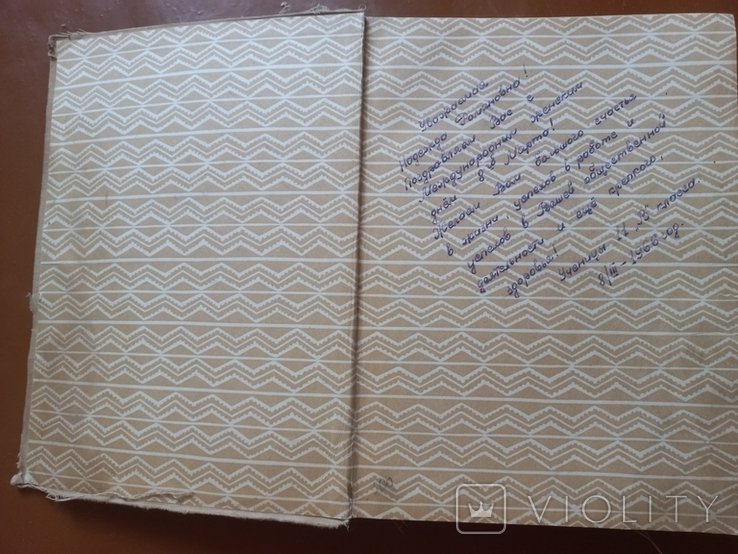 Уважаемая
Надежда Романовна!
Поздравляем Вас с
Международным женским
днём 8-е Марта!
Желаем Вам большого счастья
в жизни, успехов в работе и
успехов в Вашей общественной
деятельности и ещё крепкого,
здоровья!
Ученицы 11 „В" класса.
8/III - 1968 год.
VIOLITY